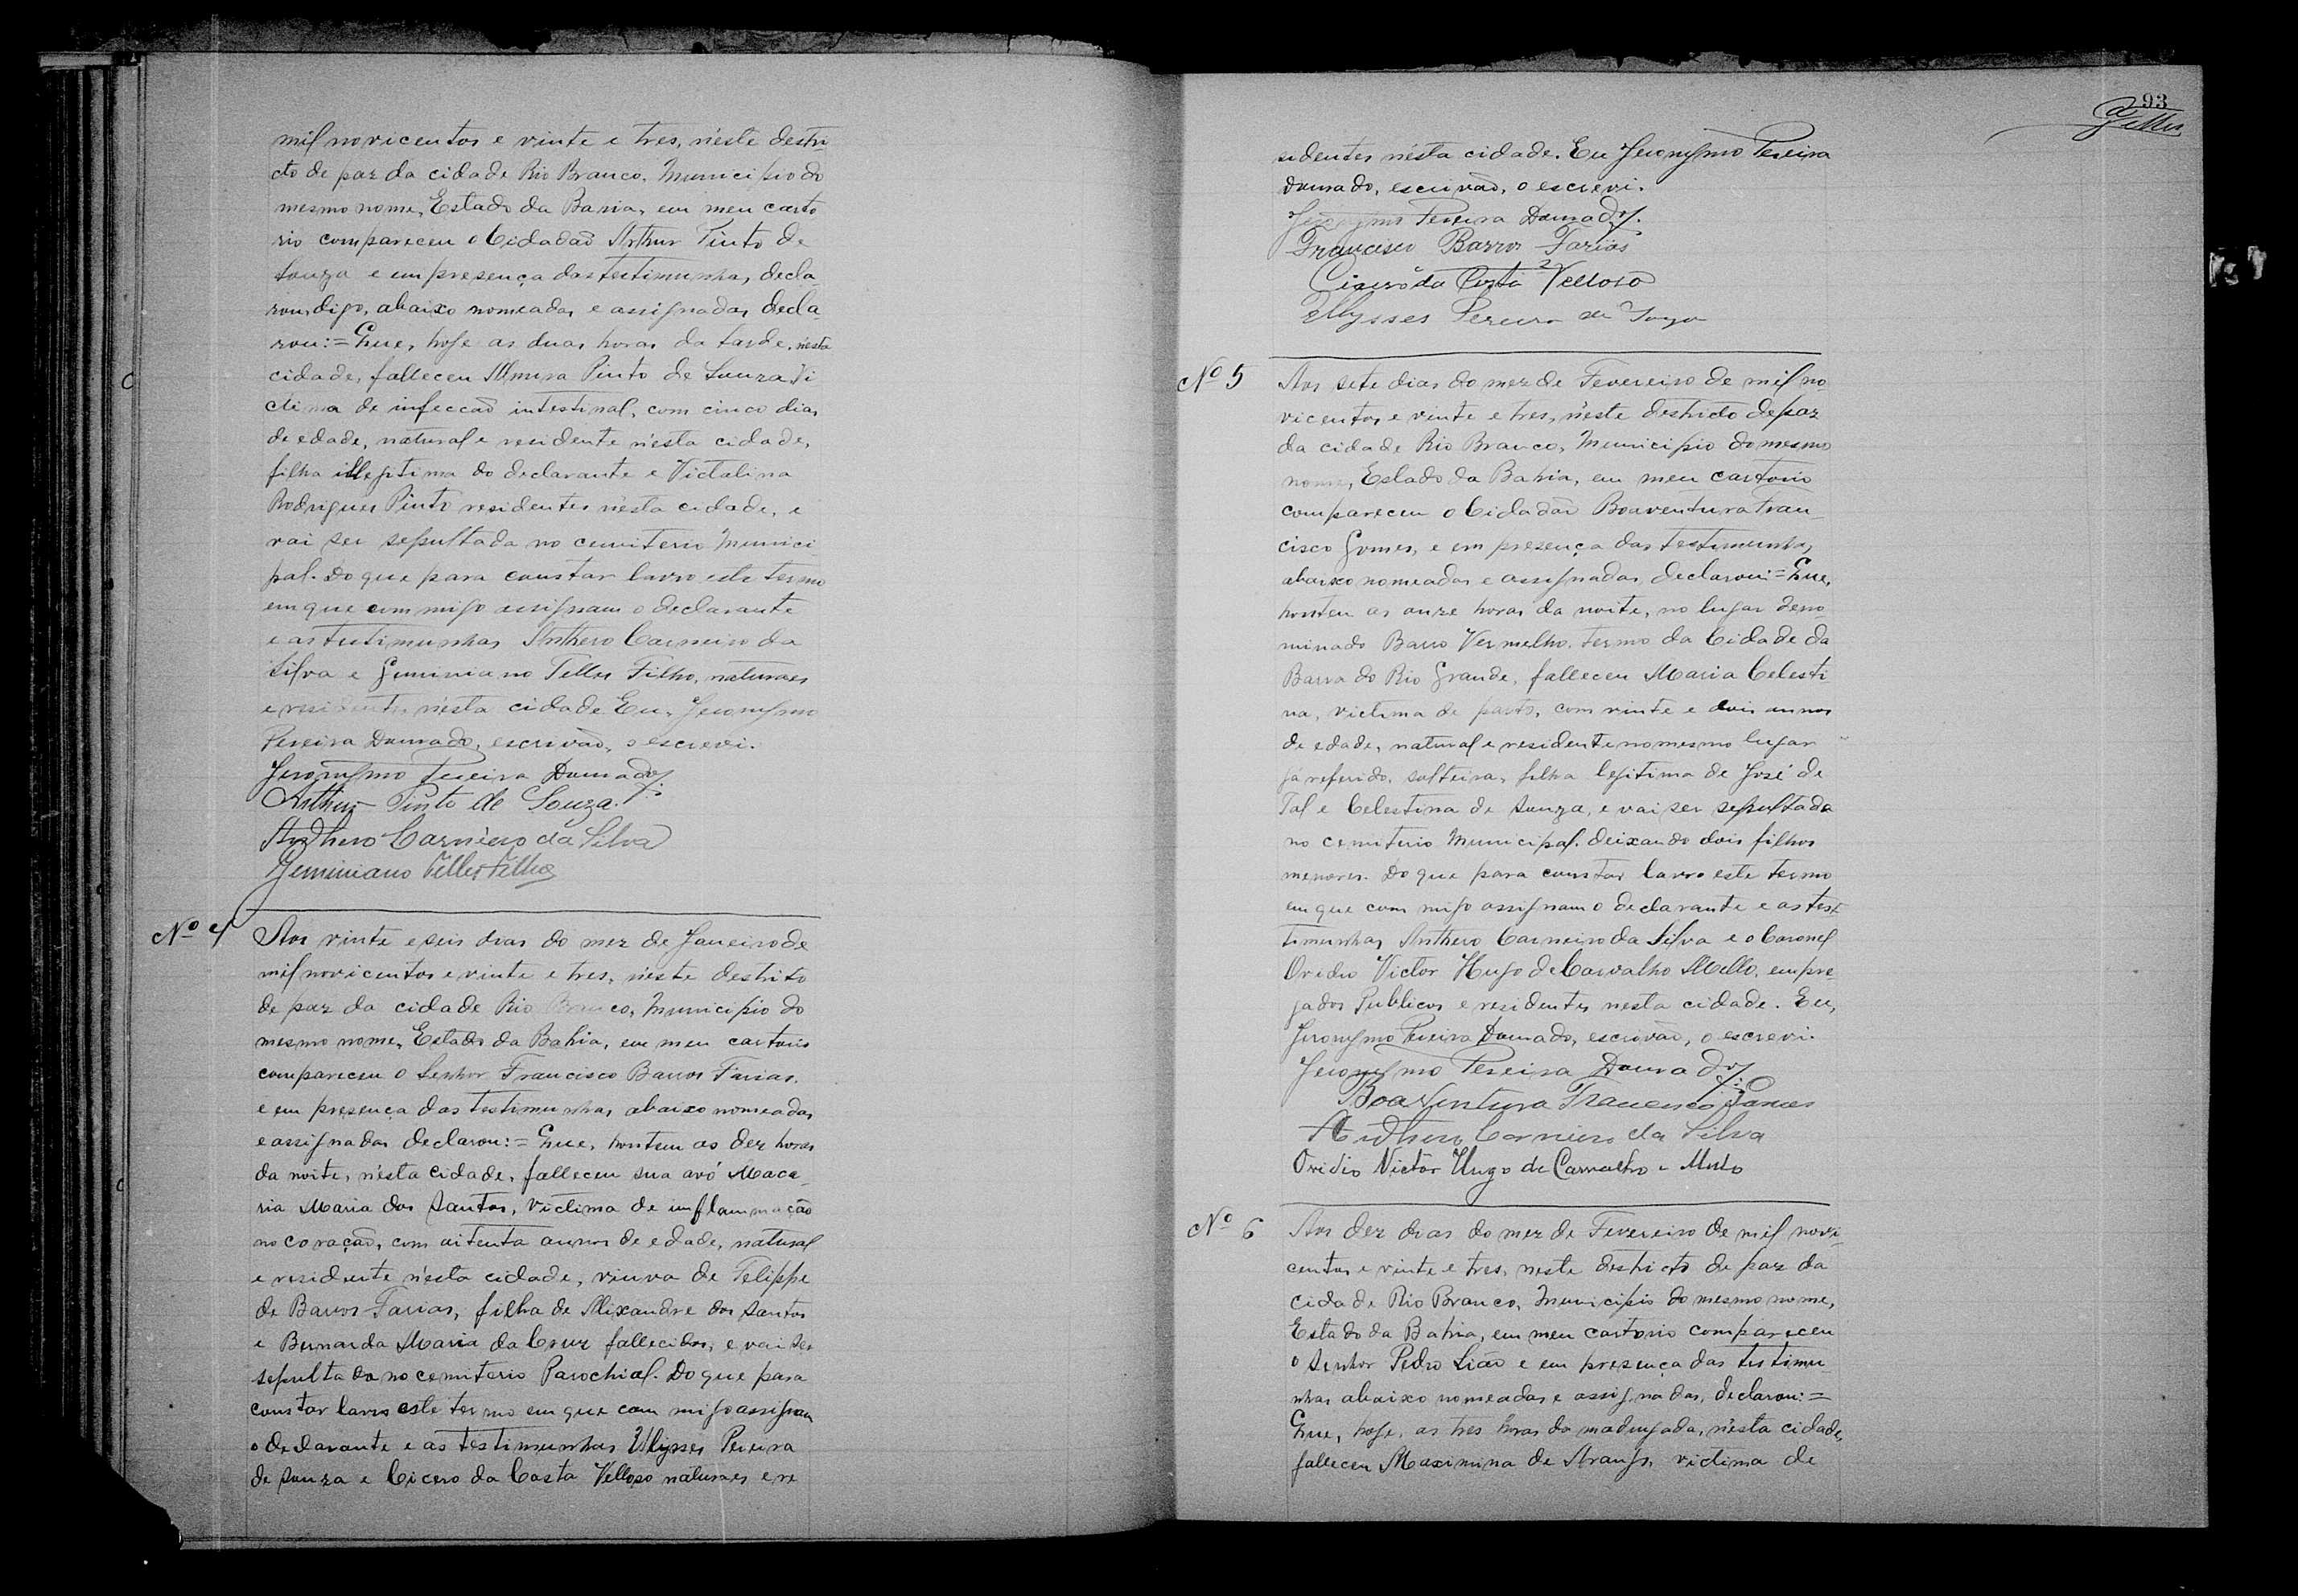 mil novicentos e vinte e tres, n'este destri-
cto de paz da cidade Rio Branco, Municipio do
mesmo nome, Estado da Bahia, em meu carto
rio compareceu o Cidadaõ Arthur Pinto de
Souza e em presença das testimunhas, decla
rou, digo, abaixo nomeadas e assignadas decla-
rou:= Que, hoje as duas horas da tarde, n'esta
cidade, falleceu Almira Pinto de Souza vi
ctima de infeccaõ intestinal, com cinco dias
de edade, natural e residente n'esta cidade,
filha illegitima do declarante e Victalina
Rodrigues Pinto residentes n'esta cidade, e
vai ser sepultada no cemiterio Munici-
pal. Do que para constar lavro este termo
em que commigo assignam o declarante
e as testimunhas Anthero Carneiro da
Silva e Geminiano Telles Filho, naturaes
e residentes n'esta cidade Eu, Jeronymo
Pereira Dourado, escrivaõ, o escrevi.
Jeronymo Pereira Dourado
Arthur Pinto de Souza.
Anthero Carneiro da Silva
Geminiano Telles Filho
Nº 4 Aos vinte e seis dias do mez de Janeiro de
mil novicentos e vinte e tres, n'este destrito
de paz da cidade Rio Branco, Municipio do
mesmo nome, Estado da Bahia, em meu cartorio
compareceu o Senhor Francisco Barros Farias,
e em presença das testimunhas abaixo nomeadas
e assignadas declarou:= Que, hontem as dez horas
da noite, n'esta cidade, falleceu sua avó Maca-
ria Maria dos Santos, victima de inflammação
no coração, com oitenta annos de edade, natural
e residente n'esta cidade, viuva de Felippe
de Barros Farias, filha de Alixandre dos Santos
e Bernarda Maria da Cruz fallecidos, e vai ser
sepultada no cemiterio Parochial. Do que para
constar lavro este termo em que com migo assignam
o declarante e as testimunhas Ulysses Pereira
de Souza e Cicero da Costa Velloso naturaes e re
93
sidentes n'ésta cidade. Eu Jeronymo Pereira
Dourado, escrivaõ, o escrevi.
Jeronymo Pereira Dourado.
Francisco Barros Farias
Cicero da Costa Velloso
Ulysses Pereira de Souza
Nº 5 Aos sete dias do mez de Fevereiro de mil no
vicentos e vinte e tres, n'éste destricto de paz
da cidade Rio Branco, Municipio do mesmo
nome, Estado da Bahia, em meu cartorio
compareceu o Cidadaõ Boaventura Fran-
cisco Gomes, e em presença das testimunhas
abaixo nomeadas e assignadas, declarou:= Que,
hontem as onze horas da noite, no lugar deno
minado Barro Vermelho, termo da Cidade da
Barra do Rio Grande, falleceu Maria Celesti
na, victima de parto, com vinte e dois annos
de edade, natural e residente no mesmo lugar
já referido, solteira, filha legitima de José de
Tal e Celestina de Souza, e vai ser sepultada
no cemiterio Municipal. deixando dois filhos
menores. Do que para constar lavro este termo
em que com migo assignam o declarante e as tes-
timunhas Anthero Carneiro da Silva e o Coronel
Ovidio Victor Hugo de Carvalho Mello, empre-
gados Publicos e residentes nesta cidade. Eu,
Jeronymo Pereira Dourado, escrivaõ, o escrevi.
Jeronymo Pereira Dourado
Boaventura Francisco Gomes
Anthero Carneiro da Silva
Ovidio Victor Hugo de Carvalho e Mello
Nº 6 Aos dez dias do mez de Fevereiro de mil novi-
centos e vinte e tres, neste destricto de paz da
cidade Rio Branco, Municipio do mesmo nome,
Estado da Bahia, em meu cartorio compareceu
o Senhor Pedro Liaõ e em presença das testimu-
nhas abaixo nomeadas e assignadas, declarou:=
Que, hoje, as tres horas da madrugada, n'ésta cidade,
falleceu Maximina de Araujo, victima de